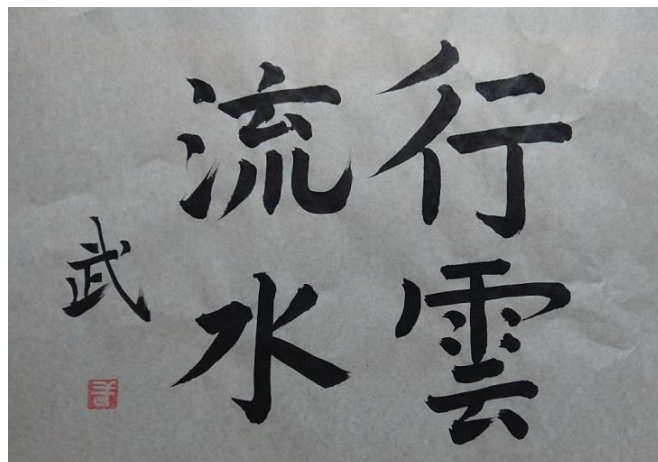 行雲
流水
武